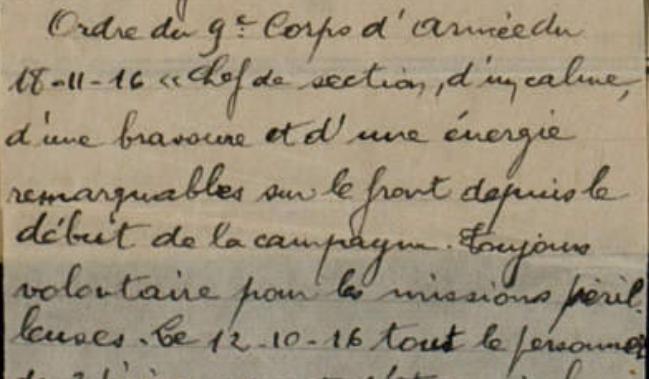 Ordre du 9e Corps d'Armée du
18-11-16 « Chef de section, d'un calme,
d'une bravoure et d'une énergie
remarquables sur le front depuis le
début de la campagne. Toujours
volontaire pour les missions péril-
leuses. Le 12-10-16 tout le personnel